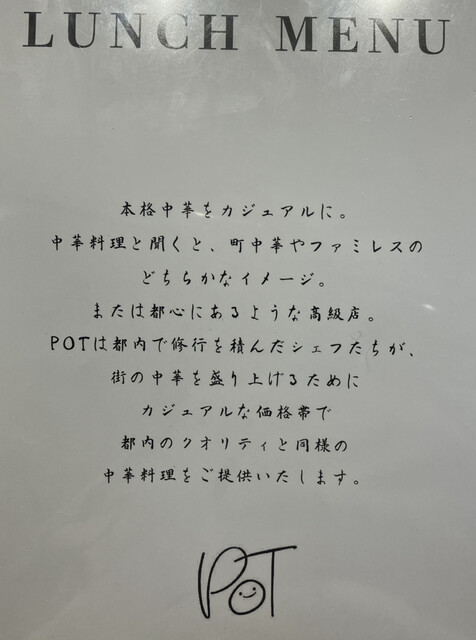 LUNCH MENU
本格中華をカジュアルに。
中華料理と聞くと、町中華やファミレスの
どちらかなイメージ。
または都心にあるような高級店。
POTは都内で修行を積んだシェフたちが、
街の中華を盛り上げるために
カジュアルな価格帯で
都内のクオリティと同様の
中華料理をご提供いたします。
POT